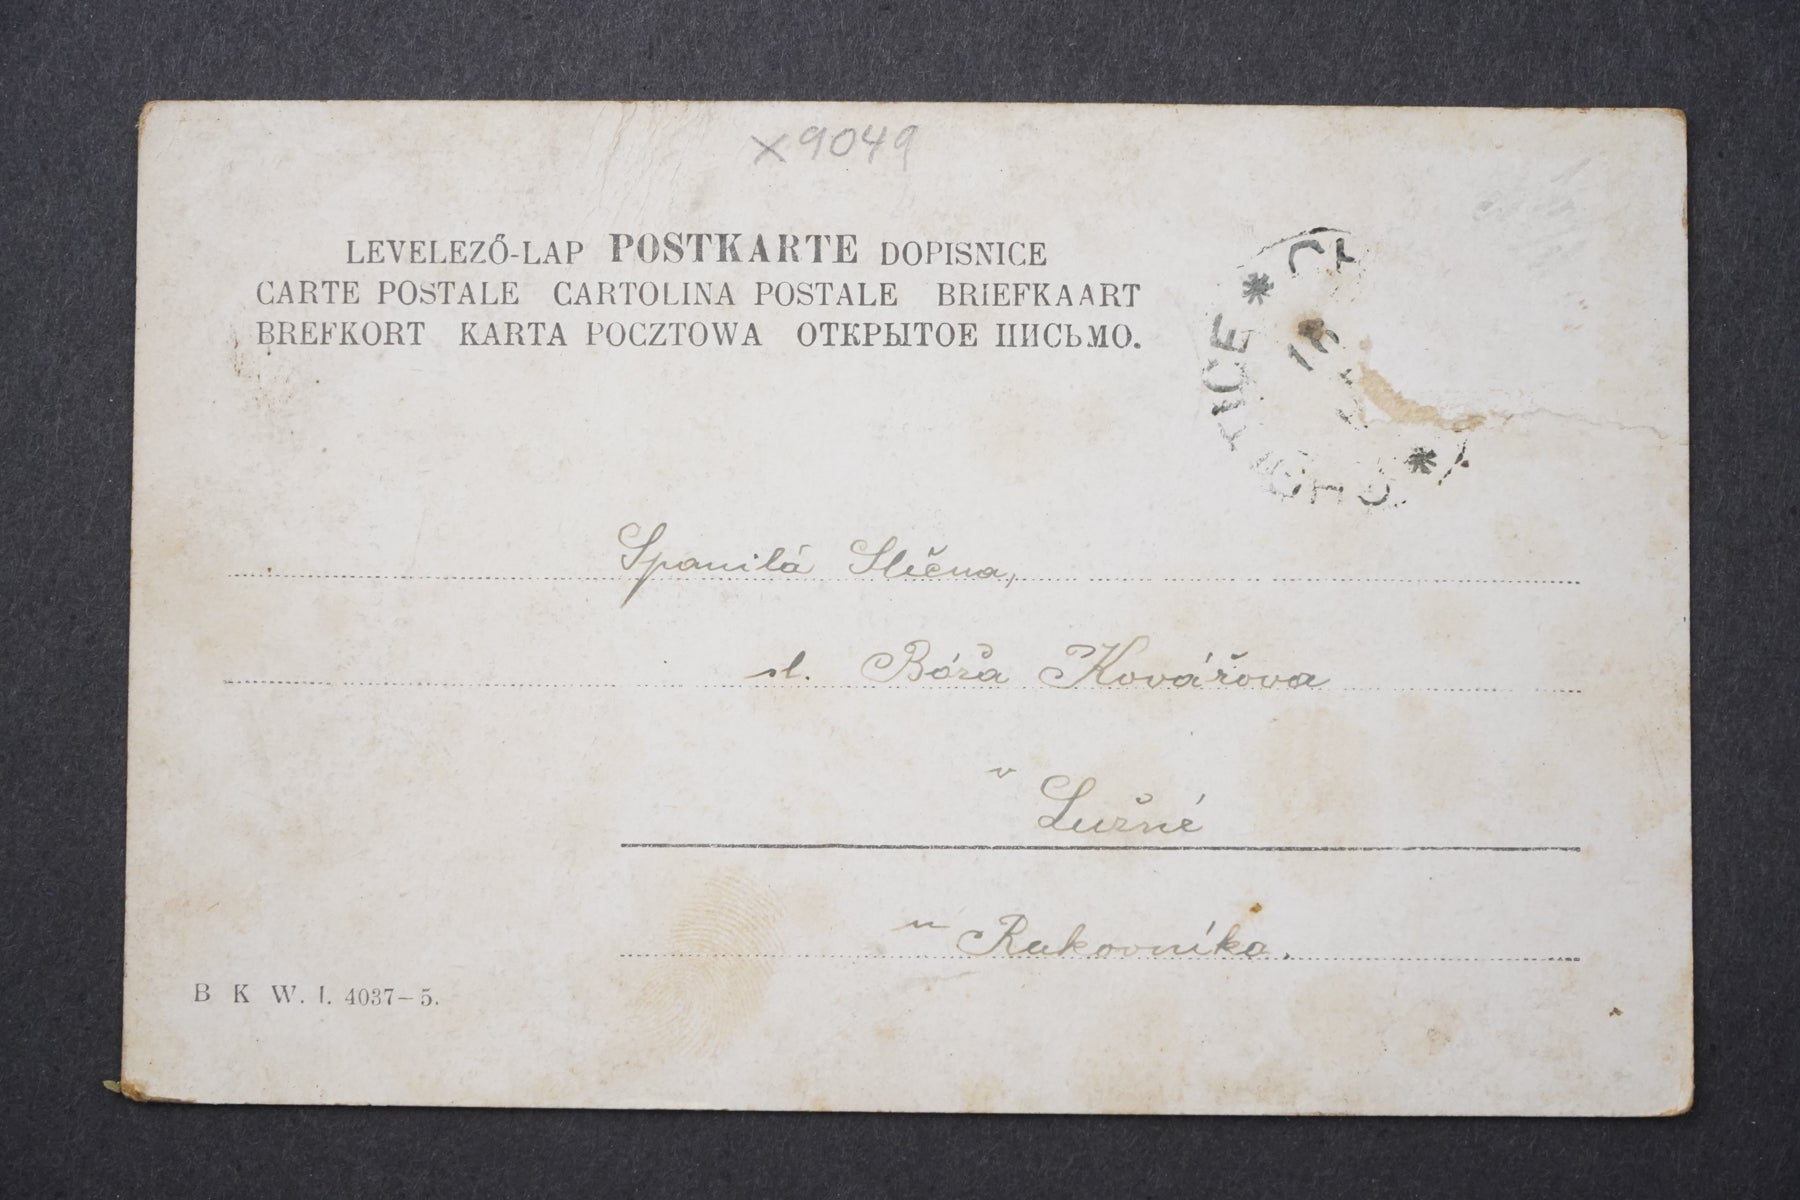 x9049
LEVELEZŐ-LAP POSTKARTE DOPISNICE
CARTE POSTALE CARTOLINA POSTALE BRIEFKAART
BREFKORT KARTA POCZTOWA ОТКРЫТОЕ ПИСЬМО.
Spanilá Slečna,
sl. Bóža Kovářova
v
Lužné
u Rakovníka.
B K W. I. 4037-5.